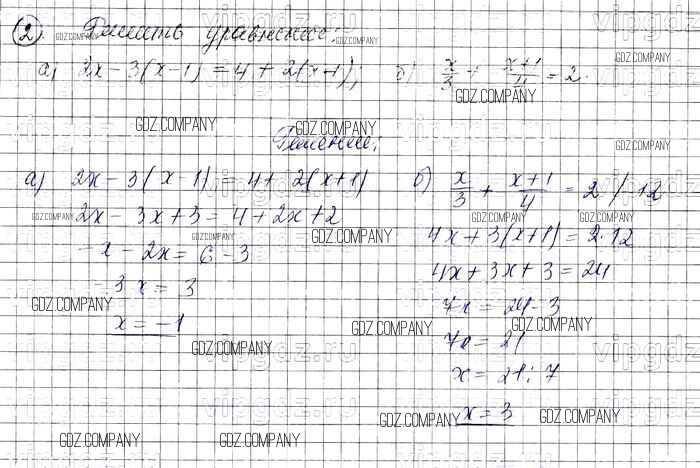 2). Решить уравнение:
а) 2x - 3(x-1) = 4 + 2(x+1); б) x/3 + (x+1)/4 = 2.
Решение:
а) 2x - 3(x-1) = 4 + 2(x+1)
2x - 3x + 3 = 4 + 2x + 2
-x - 2x = 6 - 3
-3x = 3
x = -1
б) x/3 + (x+1)/4 = 2 / · 12
4x + 3(x+1) = 2·12
4x + 3x + 3 = 24
7x = 24 - 3
7x = 21
x = 21 : 7
x = 3
GDZ.COMPANY
vipgdz.ru